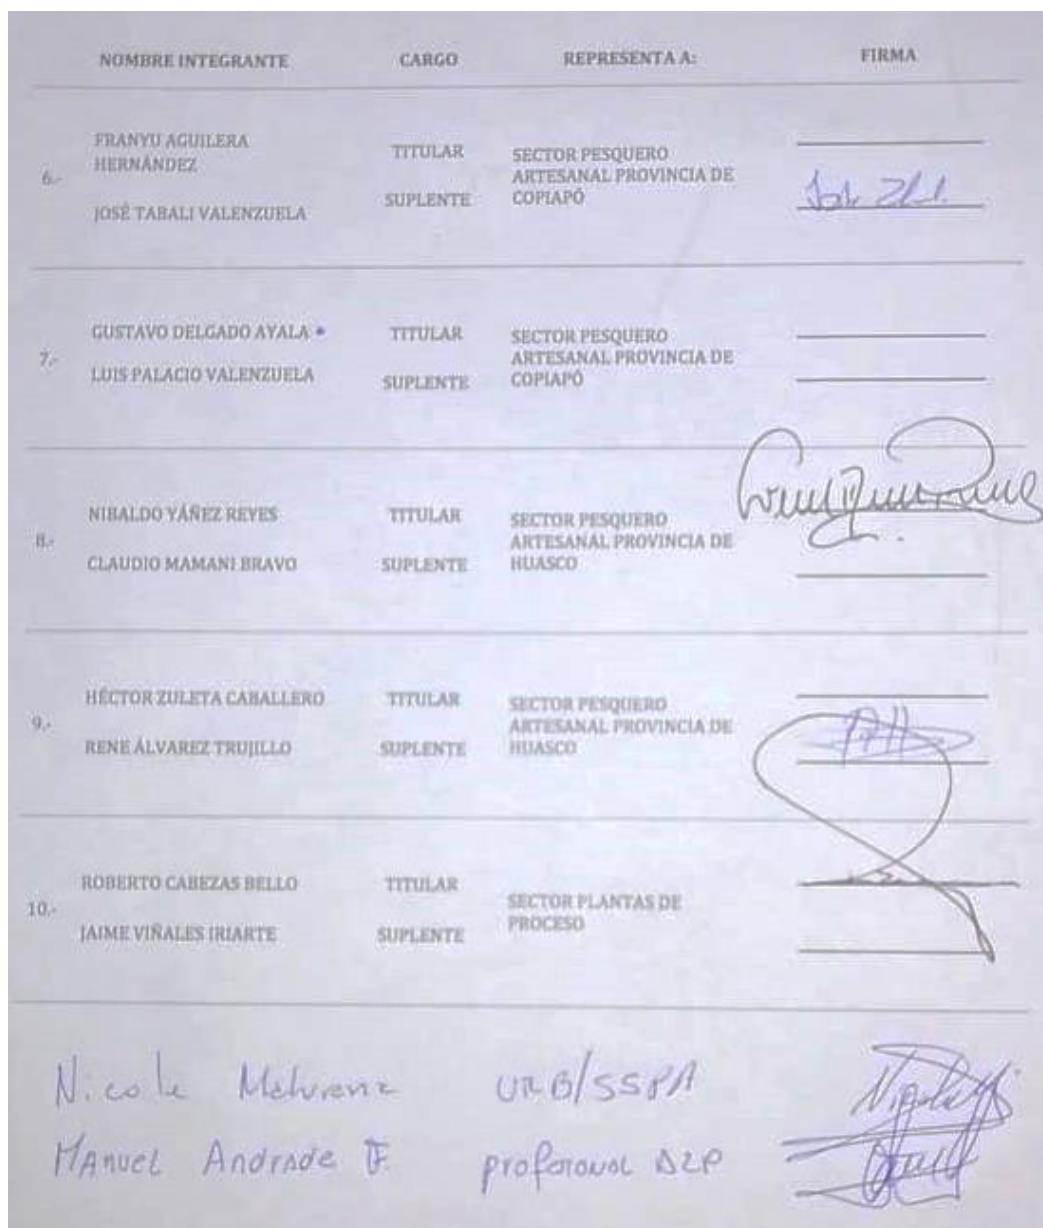 NOMBRE INTEGRANTE CARGO REPRESENTA A: FIRMA
6.- FRANYU AGUILERA HERNÁNDEZ TITULAR SECTOR PESQUERO
ARTESANAL PROVINCIA DE
JOSÉ TABALI VALENZUELA SUPLENTE COPIAPÓ
7.- GUSTAVO DELGADO AYALA • TITULAR SECTOR PESQUERO
ARTESANAL PROVINCIA DE
LUIS PALACIO VALENZUELA SUPLENTE COPIAPÓ
8.- NIBALDO YÁÑEZ REYES TITULAR SECTOR PESQUERO
ARTESANAL PROVINCIA DE
CLAUDIO MAMANI BRAVO SUPLENTE HUASCO
9.- HÉCTOR ZULETA CABALLERO TITULAR SECTOR PESQUERO
ARTESANAL PROVINCIA DE
RENE ÁLVAREZ TRUJILLO SUPLENTE HUASCO
10.- ROBERTO CABEZAS BELLO TITULAR SECTOR PLANTAS DE
JAIME VIÑALES IRIARTE SUPLENTE PROCESO
Nicole URB/SSPA
Manuel Andrade F. DZP